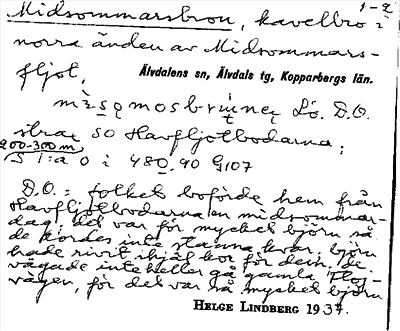 1-2
Midsommarsbron, kavelbro i
norra änden av Midsommars-
fljot,
Älvdalens sn, Älvdals tg, Kopparbergs län.
L's. D.O.
strax so Havfljotbodarna;
200-300 m
S 1:a o i 480.90 G107
D.O.: folket boförde hem från
Havfljotbodarna en midsommar-
dag; det var för mycket björn så
de tordes inte stanna kvar. björn
hade rivit ihjäl kor för dem. De
vågade inte heller gå gamla
vägen, för det var så mycket björn
HELGE LINDBERG 1934.